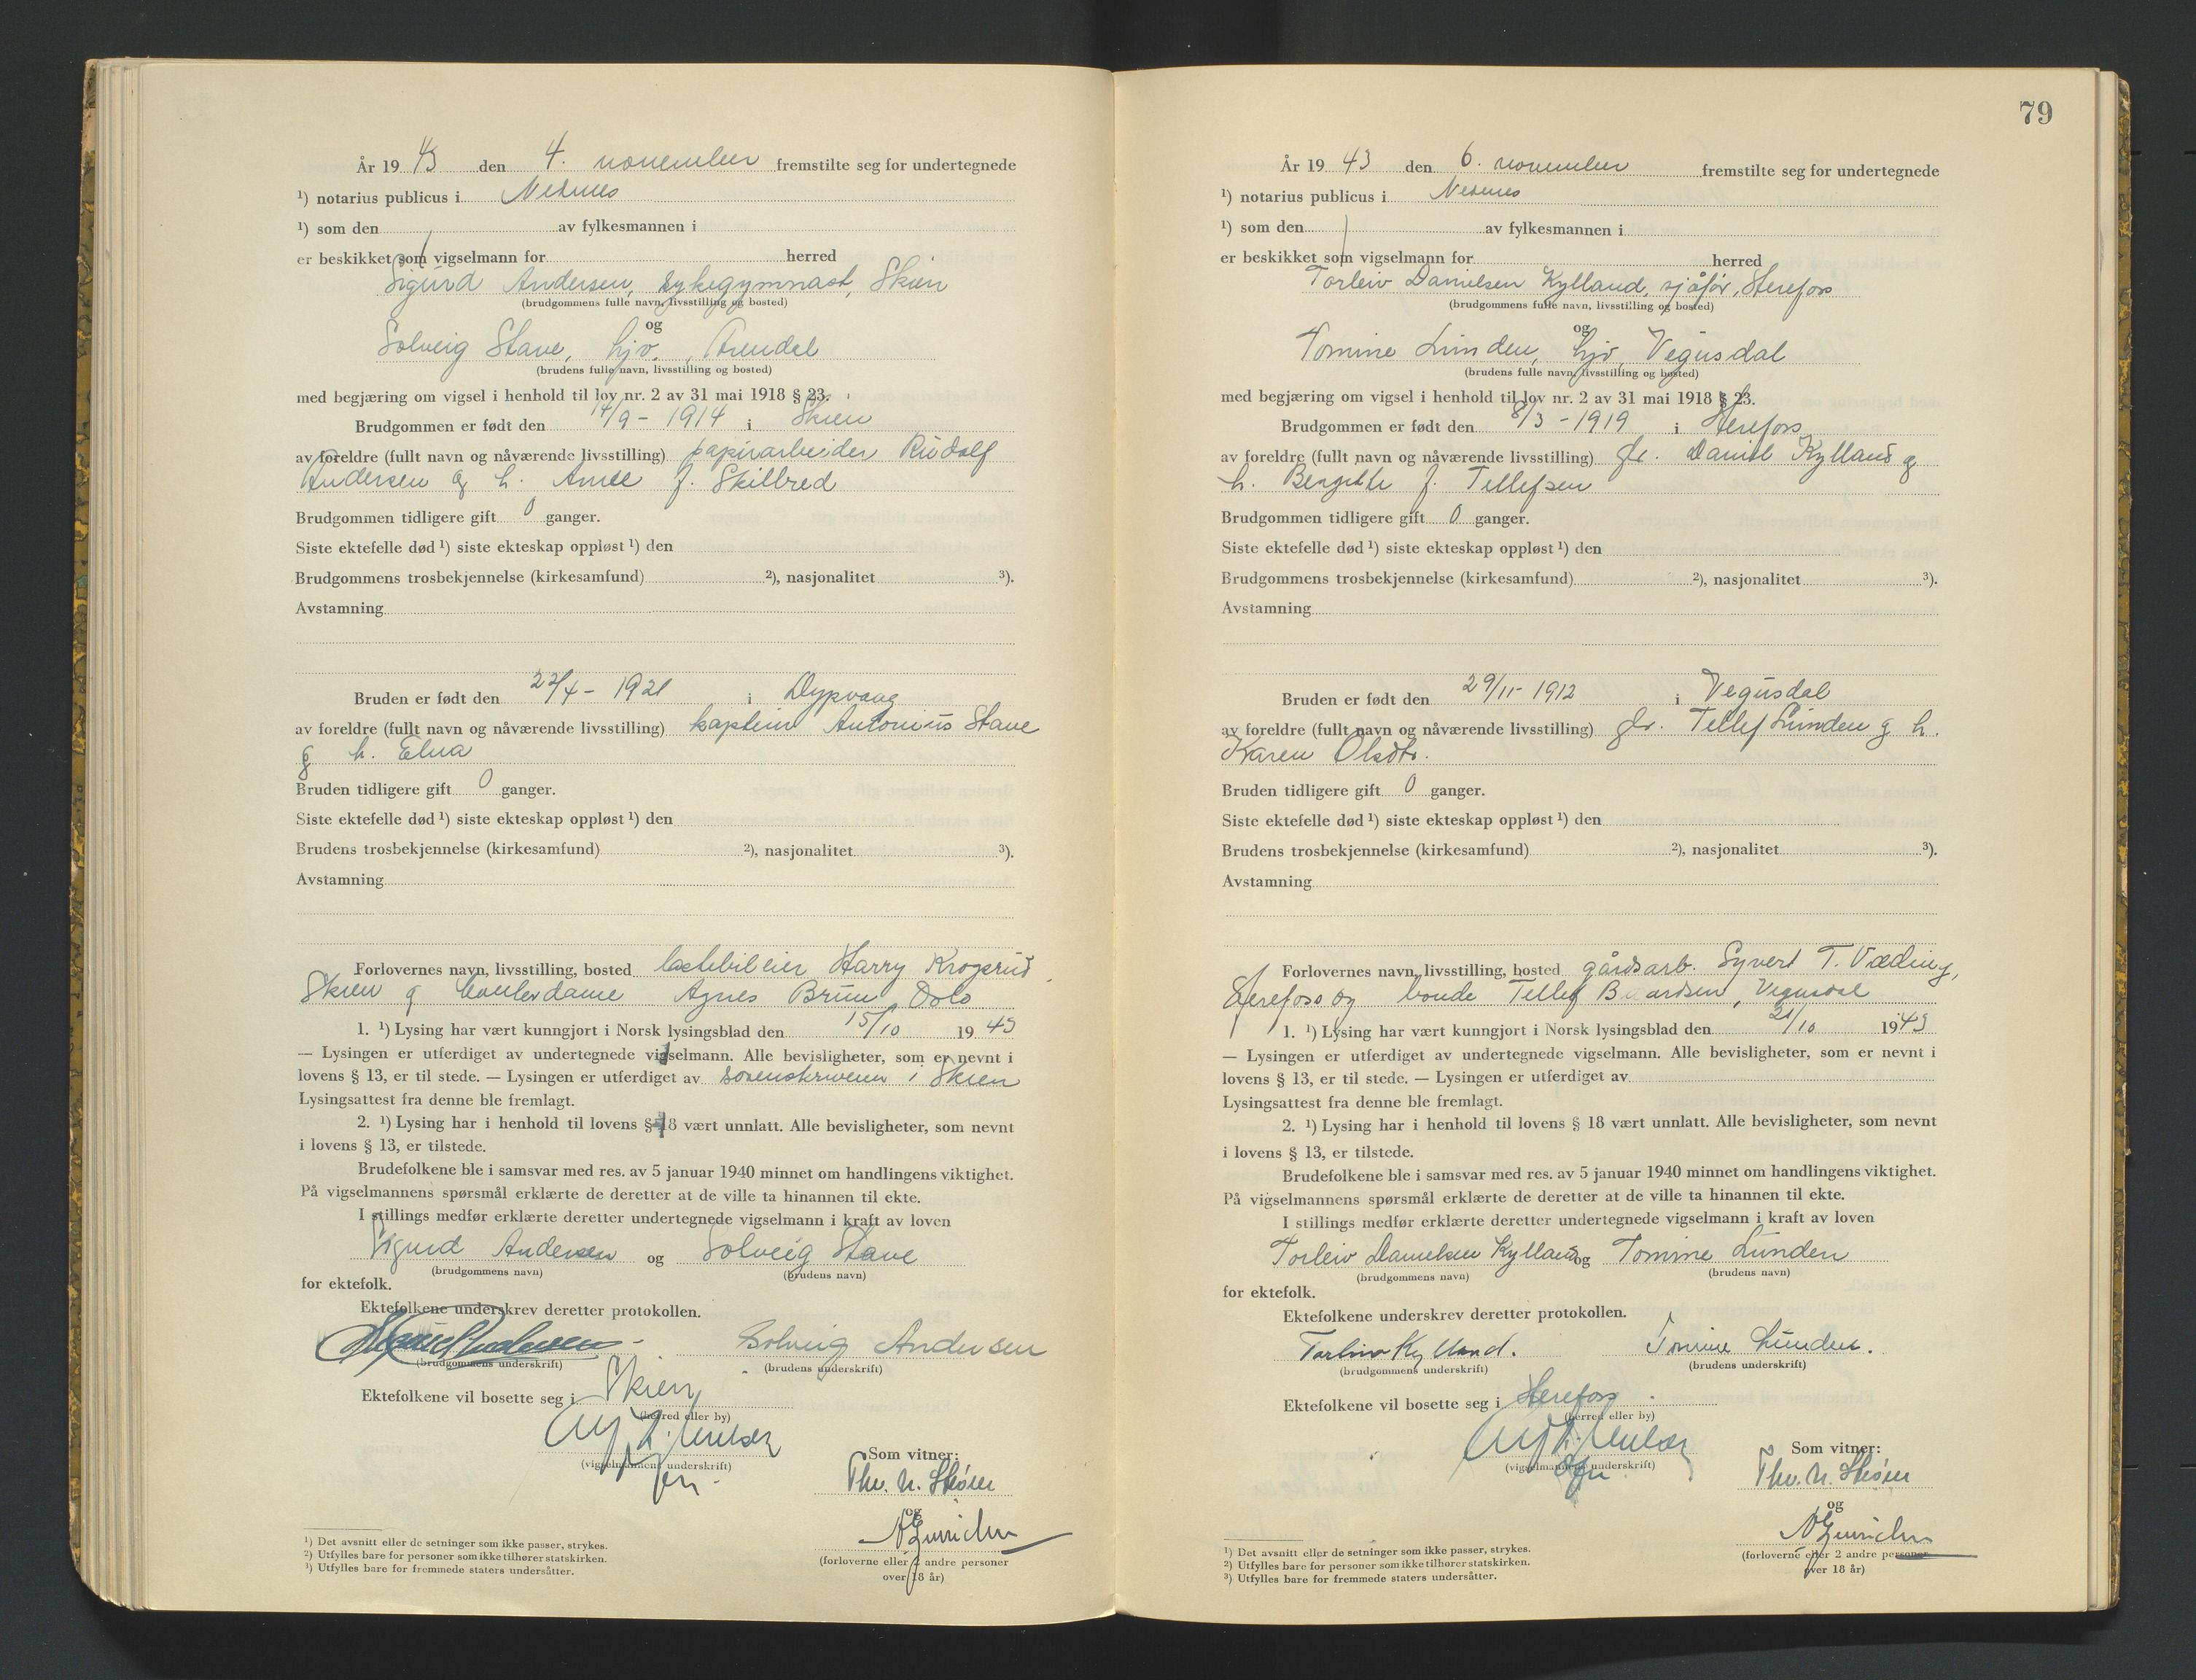 År 19 43 den 4. november fremstilte seg for undertegnede
¹) notarius publicus i Nedenes
¹) som den av fylkesmannen i
er beskikket som vigselmann for herred
Sigurd Andersen, sykegymnast, Skien
(brudgommens fulle navn, livsstilling og bosted)
og
Solveig Stave, hjv., Arendal
(brudens fulle navn, livsstilling og bosted)
med begjæring om vigsel i henhold til lov nr. 2 av 31 mai 1918 § 23.
Brudgommen er født den 14/9 - 1914 i Skien
av foreldre (fullt navn og nåværende livsstilling) papirarbeider Rudolf
Andersen og h. Anne f. Skilbred
Brudgommen tidligere gift 0 ganger.
Siste ektefelle død ¹) siste ekteskap oppløst ¹) den
Brudgommens trosbekjennelse (kirkesamfund) ²), nasjonalitet ³).
Avstamning
Bruden er født den 22/4 - 1921 i Dypvaag
av foreldre (fullt navn og nåværende livsstilling) kaptein Antonius Stave
og h. Elna
Bruden tidligere gift 0 ganger.
Siste ektefelle død ¹) siste ekteskap oppløst ¹) den
Brudens trosbekjennelse (kirkesamfund) ²), nasjonalitet ³).
Avstamning
Forlovernes navn, livsstilling, bosted lastebileier Harry Krogsrud,
Skien og kontordame Agnes Bruun, Oslo
1. ¹) Lysing har vært kunngjort i Norsk lysingsblad den 15/10 19 43
— Lysingen er utferdiget av undertegnede vigselmann. Alle bevisligheter, som er nevnt i
lovens § 13, er til stede. — Lysingen er utferdiget av sorenskriveren i Skien
Lysingsattest fra denne ble fremlagt.
2. ¹) Lysing har i henhold til lovens § 18 vært unnlatt. Alle bevisligheter, som nevnt
i lovens § 13, er tilstede.
Brudefolkene ble i samsvar med res. av 5 januar 1940 minnet om handlingens viktighet.
På vigselmannens spørsmål erklærte de deretter at de ville ta hinannen til ekte.
I stillings medfør erklærte deretter undertegnede vigselmann i kraft av loven
Sigurd Andersen og Solveig Stave
(brudgommens navn) (brudens navn)
for ektefolk.
Ektefolkene underskrev deretter protokollen.
Sigurd Andersen Solveig Andersen
(brudgommens underskrift) (brudens underskrift)
Ektefolkene vil bosette seg i Skien
(herred eller by)
(vigselmannens underskrift)
Som vitner:
Thv. N.
og
(forloverne eller 2 andre personer
over 18 år)
¹) Det avsnitt eller de setninger som ikke passer, strykes.
²) Utfylles bare for personer som ikke tilhører statskirken.
³) Utfylles bare for fremmede staters undersåtter.
79
År 19 43 den 6. november fremstilte seg for undertegnede
¹) notarius publicus i Nedenes
¹) som den av fylkesmannen i
er beskikket som vigselmann for herred
Torleiv Danielsen Kylland, sjåfør, Herefoss
(brudgommens fulle navn, livsstilling og bosted)
og
Tomine Lunden, hjv, Vegusdal
(brudens fulle navn, livsstilling og bosted)
med begjæring om vigsel i henhold til lov nr. 2 av 31 mai 1918 § 23.
Brudgommen er født den 8/3 - 1919 i Herefoss
av foreldre (fullt navn og nåværende livsstilling) gbr. Daniel Kylland og
h. Bergithe f. Tellefsen
Brudgommen tidligere gift 0 ganger.
Siste ektefelle død ¹) siste ekteskap oppløst ¹) den
Brudgommens trosbekjennelse (kirkesamfund) ²), nasjonalitet ³).
Avstamning
Bruden er født den 29/11 - 1912 i Vegusdal
av foreldre (fullt navn og nåværende livsstilling) gbr. Tellef Lunden og h.
Karen Olsdtr.
Bruden tidligere gift 0 ganger.
Siste ektefelle død ¹) siste ekteskap oppløst ¹) den
Brudens trosbekjennelse (kirkesamfund) ²), nasjonalitet ³).
Avstamning
Forlovernes navn, livsstilling, bosted gårdsarb. Syvert T. Væding,
Herefoss og bonde Tellef Vegusdal
1. ¹) Lysing har vært kunngjort i Norsk lysingsblad den 21/10 19 43
— Lysingen er utferdiget av undertegnede vigselmann. Alle bevisligheter, som er nevnt i
lovens § 13, er til stede. — Lysingen er utferdiget av
Lysingsattest fra denne ble fremlagt.
2. ¹) Lysing har i henhold til lovens § 18 vært unnlatt. Alle bevisligheter, som nevnt
i lovens § 13, er tilstede.
Brudefolkene ble i samsvar med res. av 5 januar 1940 minnet om handlingens viktighet.
På vigselmannens spørsmål erklærte de deretter at de ville ta hinannen til ekte.
I stillings medfør erklærte deretter undertegnede vigselmann i kraft av loven
Torleiv Danielsen Kylland og Tomine Lunden
(brudgommens navn) (brudens navn)
for ektefolk.
Ektefolkene underskrev deretter protokollen.
Torleiv Kylland. Tomine Lunden.
(brudgommens underskrift) (brudens underskrift)
Ektefolkene vil bosette seg i Herefoss
(herred eller by)
(vigselmannens underskrift)
Som vitner:
Thv. N.
og
(forloverne eller 2 andre personer
over 18 år)
¹) Det avsnitt eller de setninger som ikke passer, strykes.
²) Utfylles bare for personer som ikke tilhører statskirken.
³) Utfylles bare for fremmede staters undersåtter.